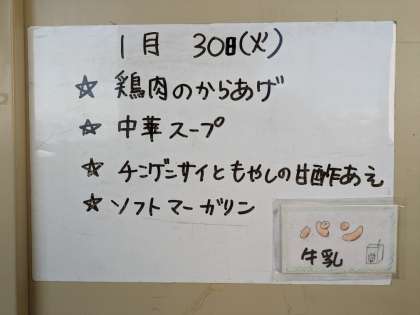 1月 30日(火)
☆ 鶏肉のからあげ
☆ 中華スープ
☆ チンゲンサイともやしの甘酢あえ
☆ ソフトマーガリン
パン
牛乳